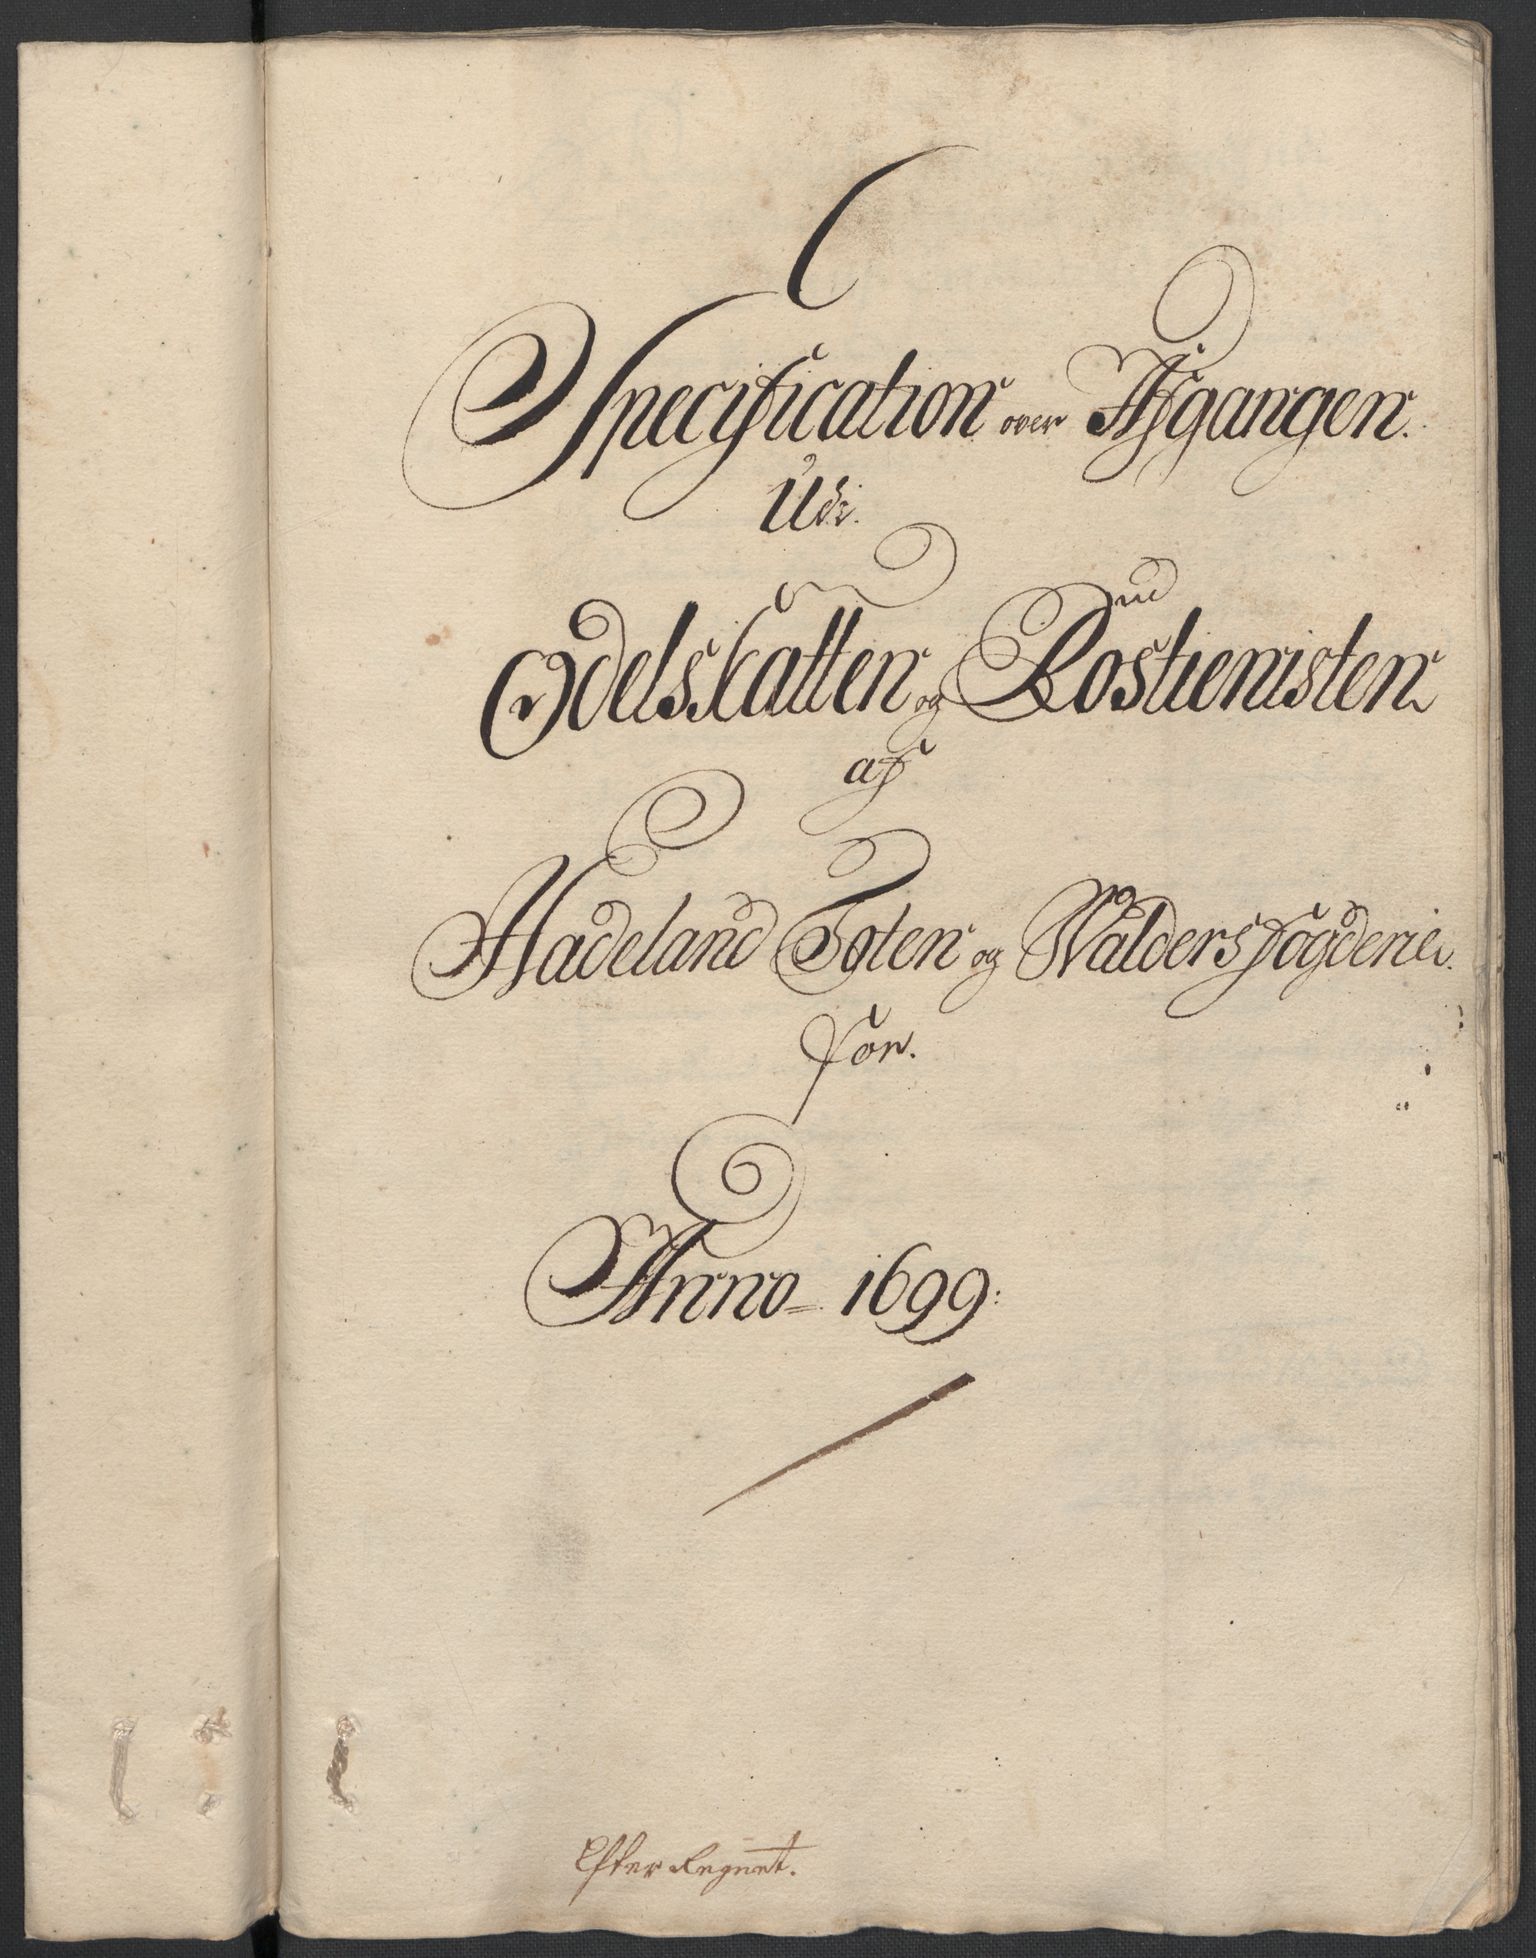 C
Specification over Afgangen.
Udi.
Odelskatten og Rostienisten
ud
af
Hadeland Toten og Walders fogderie.
for.
Anno 1699:
Efter Regnet.